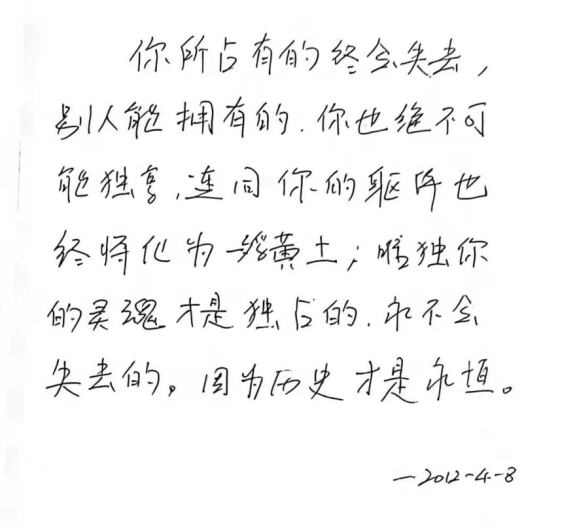 你所占有的终会失去，
别人能拥有的.你也绝不可
能独享,连同你的躯阵也
终将化为一缕黄土；唯独你
的灵魂才是独占的.永不会
失去的。因为历史才是永恒。
—2012-4-8